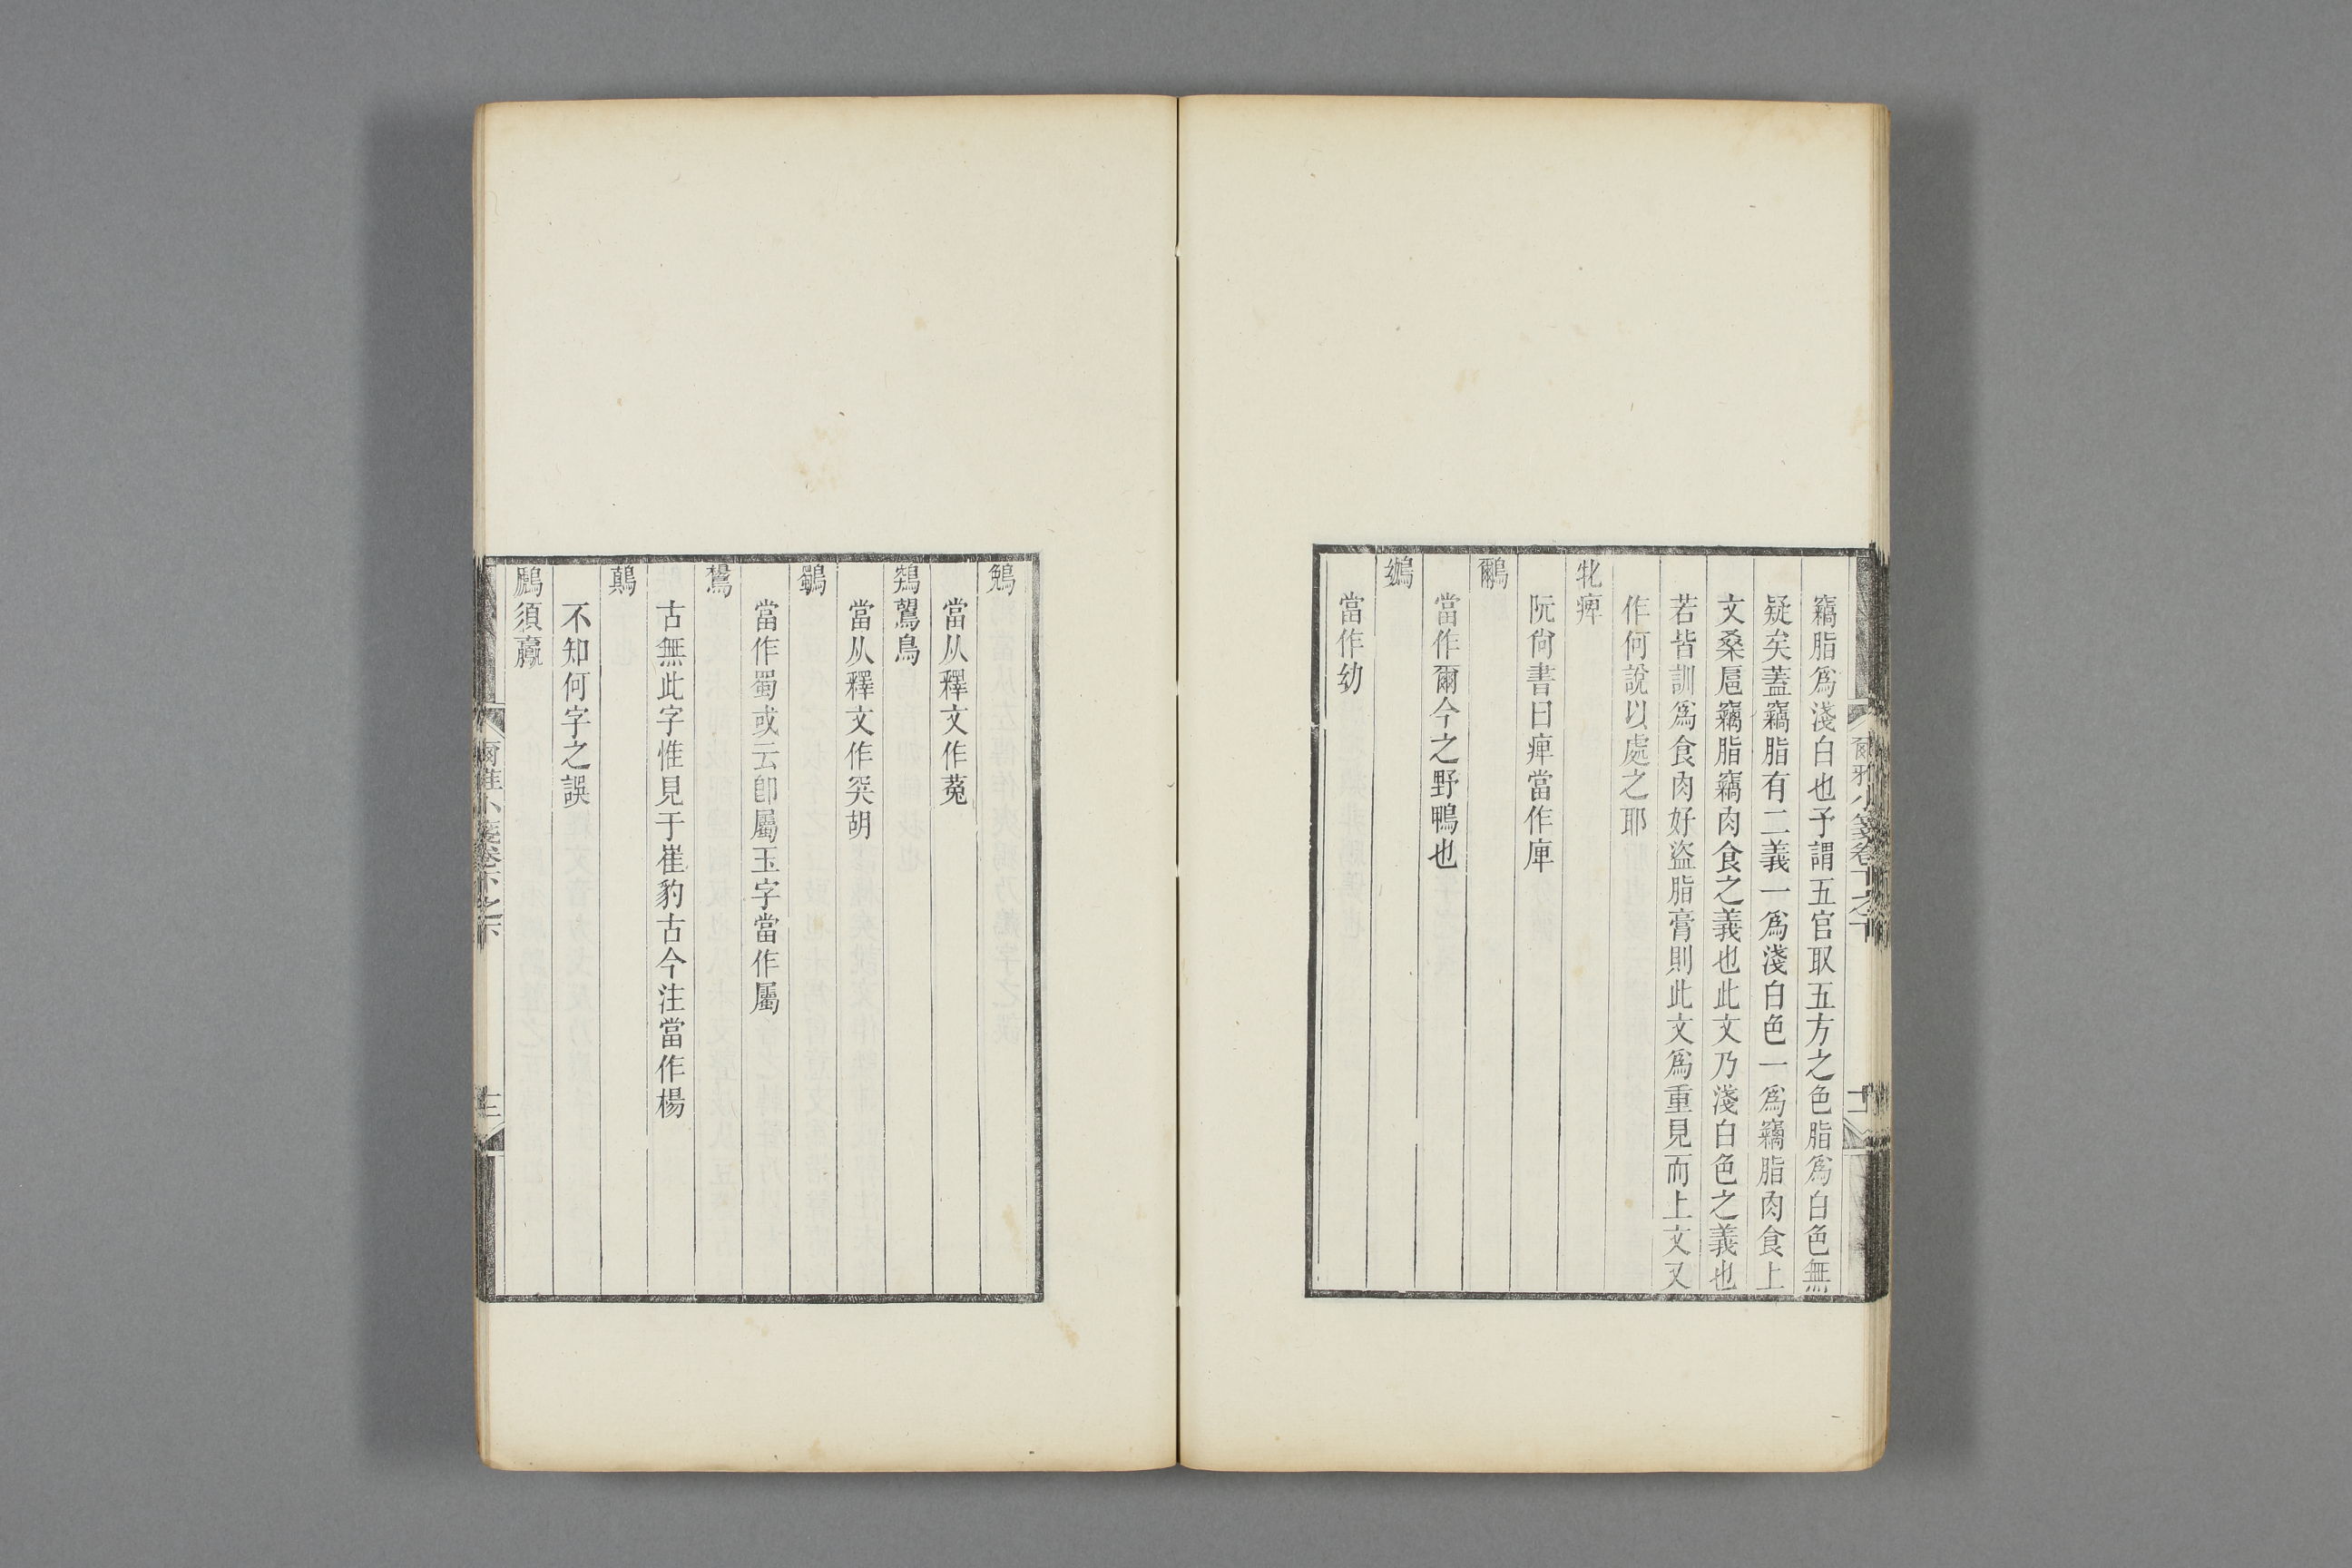 竊脂爲淺白也予謂五官取五方之色脂爲白色無
疑矣蓋竊脂有二義一爲淺白色一爲竊脂肉食上
文桑扈竊脂竊肉食之義也此文乃淺白色之義也
若皆訓爲食肉好盜脂膏則此文爲重見而上文又
作何說以處之耶
牝痺
阮尙書曰痺當作庳
鸍
當作爾今之野鴨也
䴂
當作幼
爾雅小箋卷下之下
鵵
當从釋文作菟
鶟鶦鳥
當从釋文作突胡
鸀
當作蜀或云卽屬玉字當作屬
鸉
古無此字惟見于崔豹古今注當作楊
鷏
不知何字之誤
鷉須鸁
爾雅小箋卷下之下